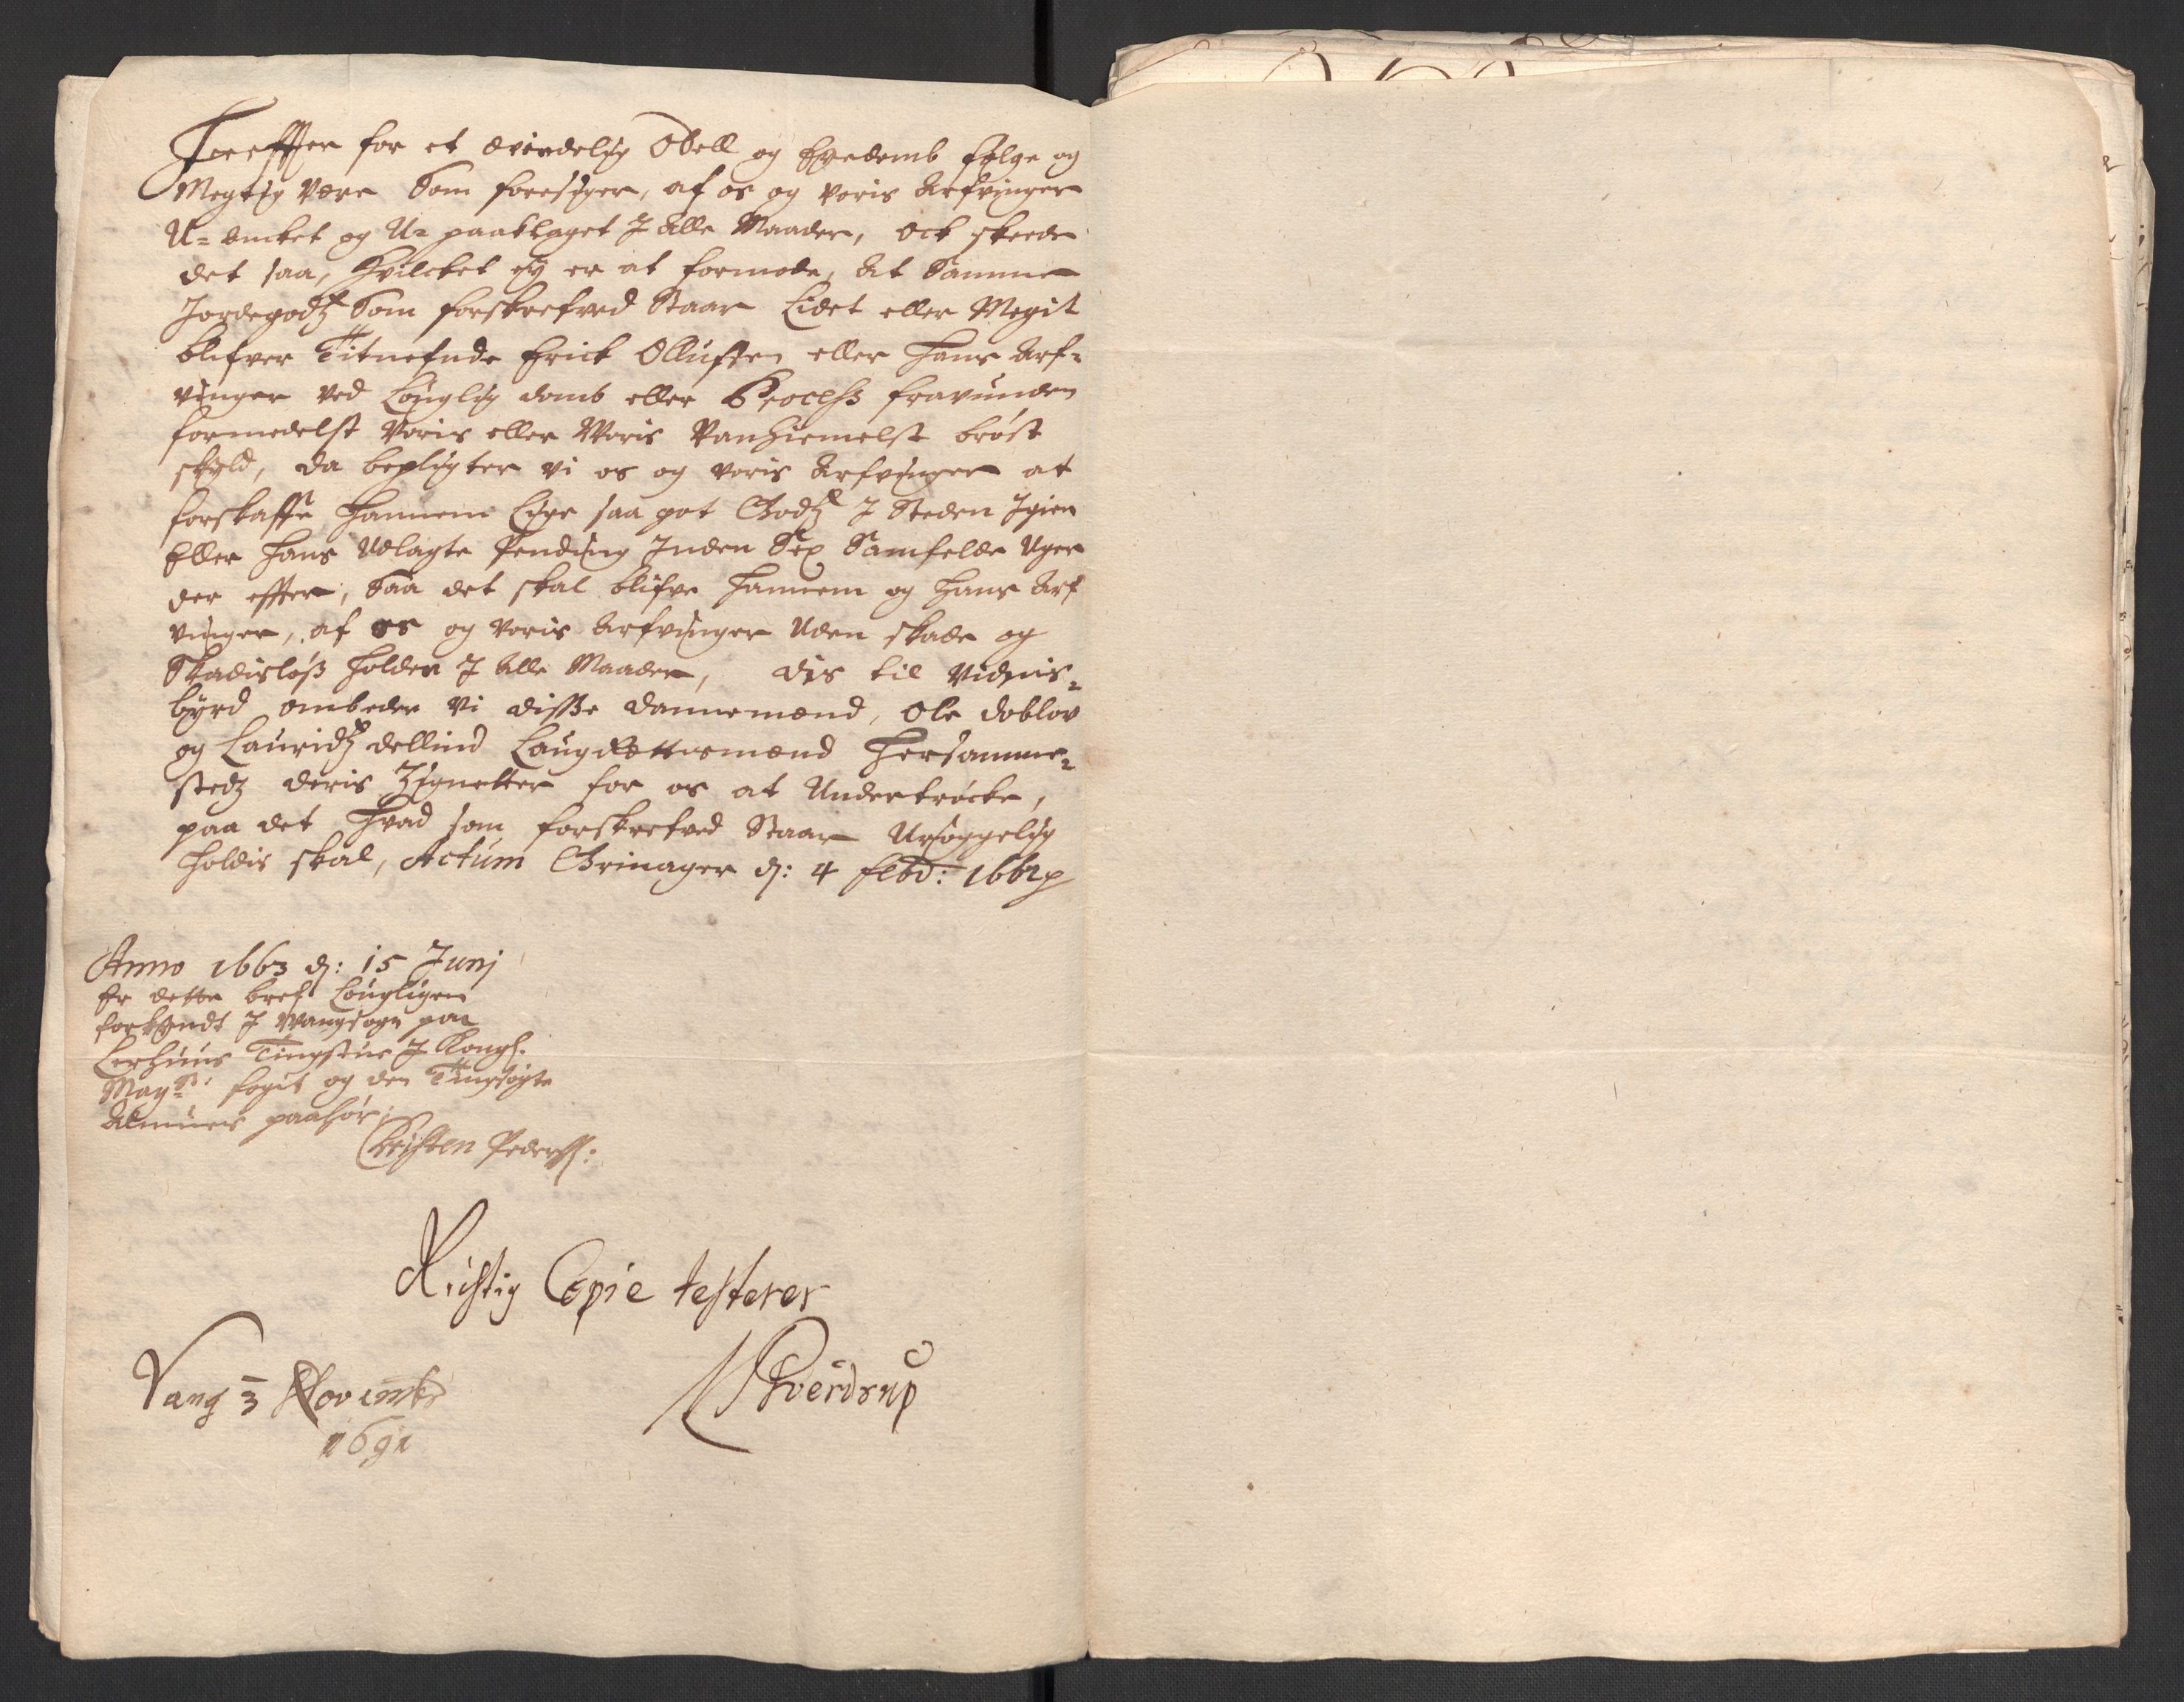 Hereffter for et ævindelig Odell og Eyedomb følge og
Megtig være Som foresiger, af os og voris Arfvinger
U= ancket og U= paaklaget J Alle Maader, Ock skeede
det saa, Hvilcket ey er at formode, At Samme
Jordegodtz Som forskrefved Staar Lidet eller Megit
blifver Titnefnde Erick Olluffsen eller hans Arf=
vinger ved Louglig domb eller Process fravunden
formedelst Voris eller Woris Vanhiemelst brøst
skyld, da bepligter vi os og voris Arfvinger at
forskaffe hannem Lige saa got Godtz J Steden Jgien
Eller hans Udlagte Pending Inden Sex Samfelde Uger
der effter, Saa det skal blifve hannem og hans Arf
vinger, af os og voris Arfvinger Uden skade og
Skadisløs holden J Alle Maader, dis til Vidnis=
byrd ombeder vi disse dannemænd, Ole doblov
og Lauridtz dellind Laugrættismænd hersamme=
stedz deris Zignetter for os at Undertrøcke,
paa det hvad som forskrefved Staar Uryggelig
holdis skal, Actum Grinager dj: 4 febr: 1662
Anno 1663 dj: 15 Junj
Er dette bref Lougligen
forkyndt J Wangsogn paa
Tingstue J Kongl.
Mays: fogit og den Tingsøgte
Almues paahør;
Christen Pederss:
Richtig Copie testerer
Vang 3 Novembr
1691